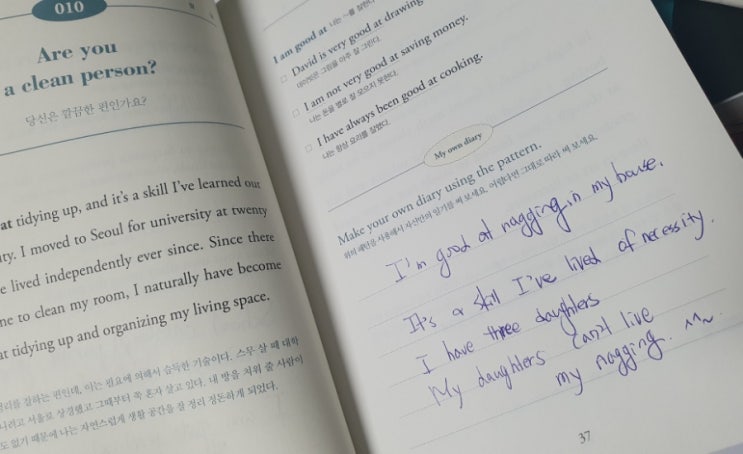 010
Are you
a clean person?
당신은 깔끔한 편인가요?
at tidying up, and it's a skill I've learned out
ity. I moved to Seoul for university at twenty
e lived independently ever since. Since there
ne to clean my room, I naturally have become
at tidying up and organizing my living space.
정리를 잘하는 편인데, 이는 필요에 의해서 습득한 기술이다. 스무 살 때 대학
니려고 서울로 상경했고 그때부터 쭉 혼자 살고 있다. 내 방을 치워 줄 사람이
도 없기 때문에 나는 자연스럽게 생활 공간을 잘 정리 정돈하게 되었다.
I am good at 나는 ~를 잘한다
David is very good at drawing
데이빗은 그림을 아주 잘 그린다.
I am not very good at saving money.
나는 돈을 별로 잘 모으지 못한다.
I have always been good at cooking.
나는 항상 요리를 잘했다.
My own diary
Make your own diary using the pattern.
위의 패턴을 사용해서 자신만의 일기를 써 보세요. 어렵다면 그대로 따라 써 보세요.
I'm good at nagging in my house.
It's a skill I've lived of necessity.
I have three daughters
My daughters can't live
my nagging.
37